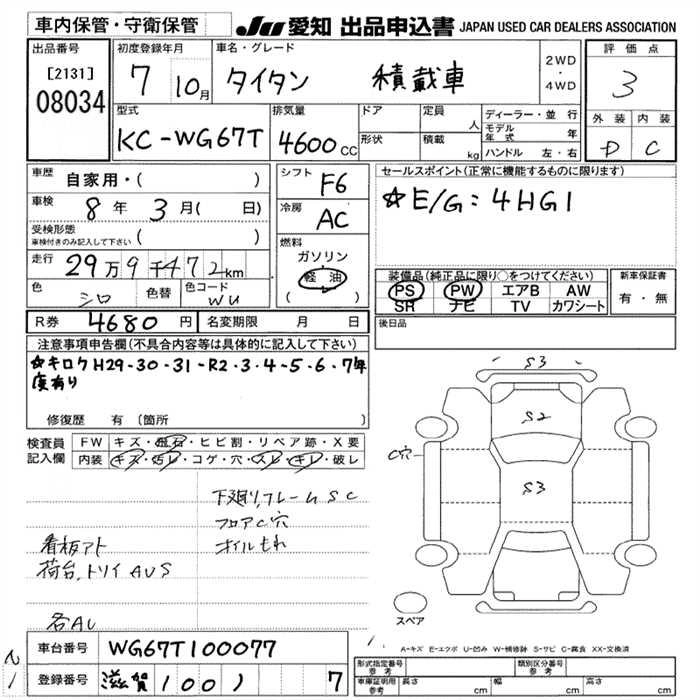 車内保管・守衛保管 JU 愛知 出品申込書 JAPAN USED CAR DEALERS ASSOCIATION
出品番号 初度登録年月 車名・グレード 評価点
[2131] 08034 7 10月 タイタン 積載車 2WD・4WD 3
型式 排気量 ドア 定員 人 ディーラー・並行 外装 内装
KC-WG67T 4600cc 形状 積載 kg モデル年式 年 D C
ハンドル 左・右
車歴 自家用・( ) シフト F6 セールスポイント(正常に機能するものに限ります)
車検 8年 3月( 日) 冷房 AC ☆E/G:4HG1
受検形態 車検付きのみ記入して下さい ( )
燃料 ガソリン 軽油 ( )
走行 29万9千472km 装備品(純正品に限り○をつけてください) 新車保証書
色 シロ 色替 色コード WU PS PW エアB AW 有・無
SR ナビ TV カワシート
R券 4680円 名変期限 月 日 後日品
注意事項申告欄(不具合内容等は具体的に記入して下さい)
☆キロクH29-30-31-R2・3・4-5・6・7年
度有り
修復歴 有 (箇所 )
検査員記入欄 FW キズ・飛石・ヒビ割・リペア跡・X要
内装 キズ・汚レ・コゲ・穴・スレ・キレ・破レ
S3
S2
C穴
S3
下廻り,フレームSC
フロアC穴
看板アト オイルもれ
荷台,トリイAUS
各AU
スペア
A-キズ E-エクボ U-凹み W-補修跡 S-サビ C-腐食 XX-交換済
車台番号 WG67T100077
登録番号 滋賀 100 ) 7
形式指定番号 参考 類別区分番号 参考
車庫証明用 参考 長さ cm 幅 cm 高さ cm